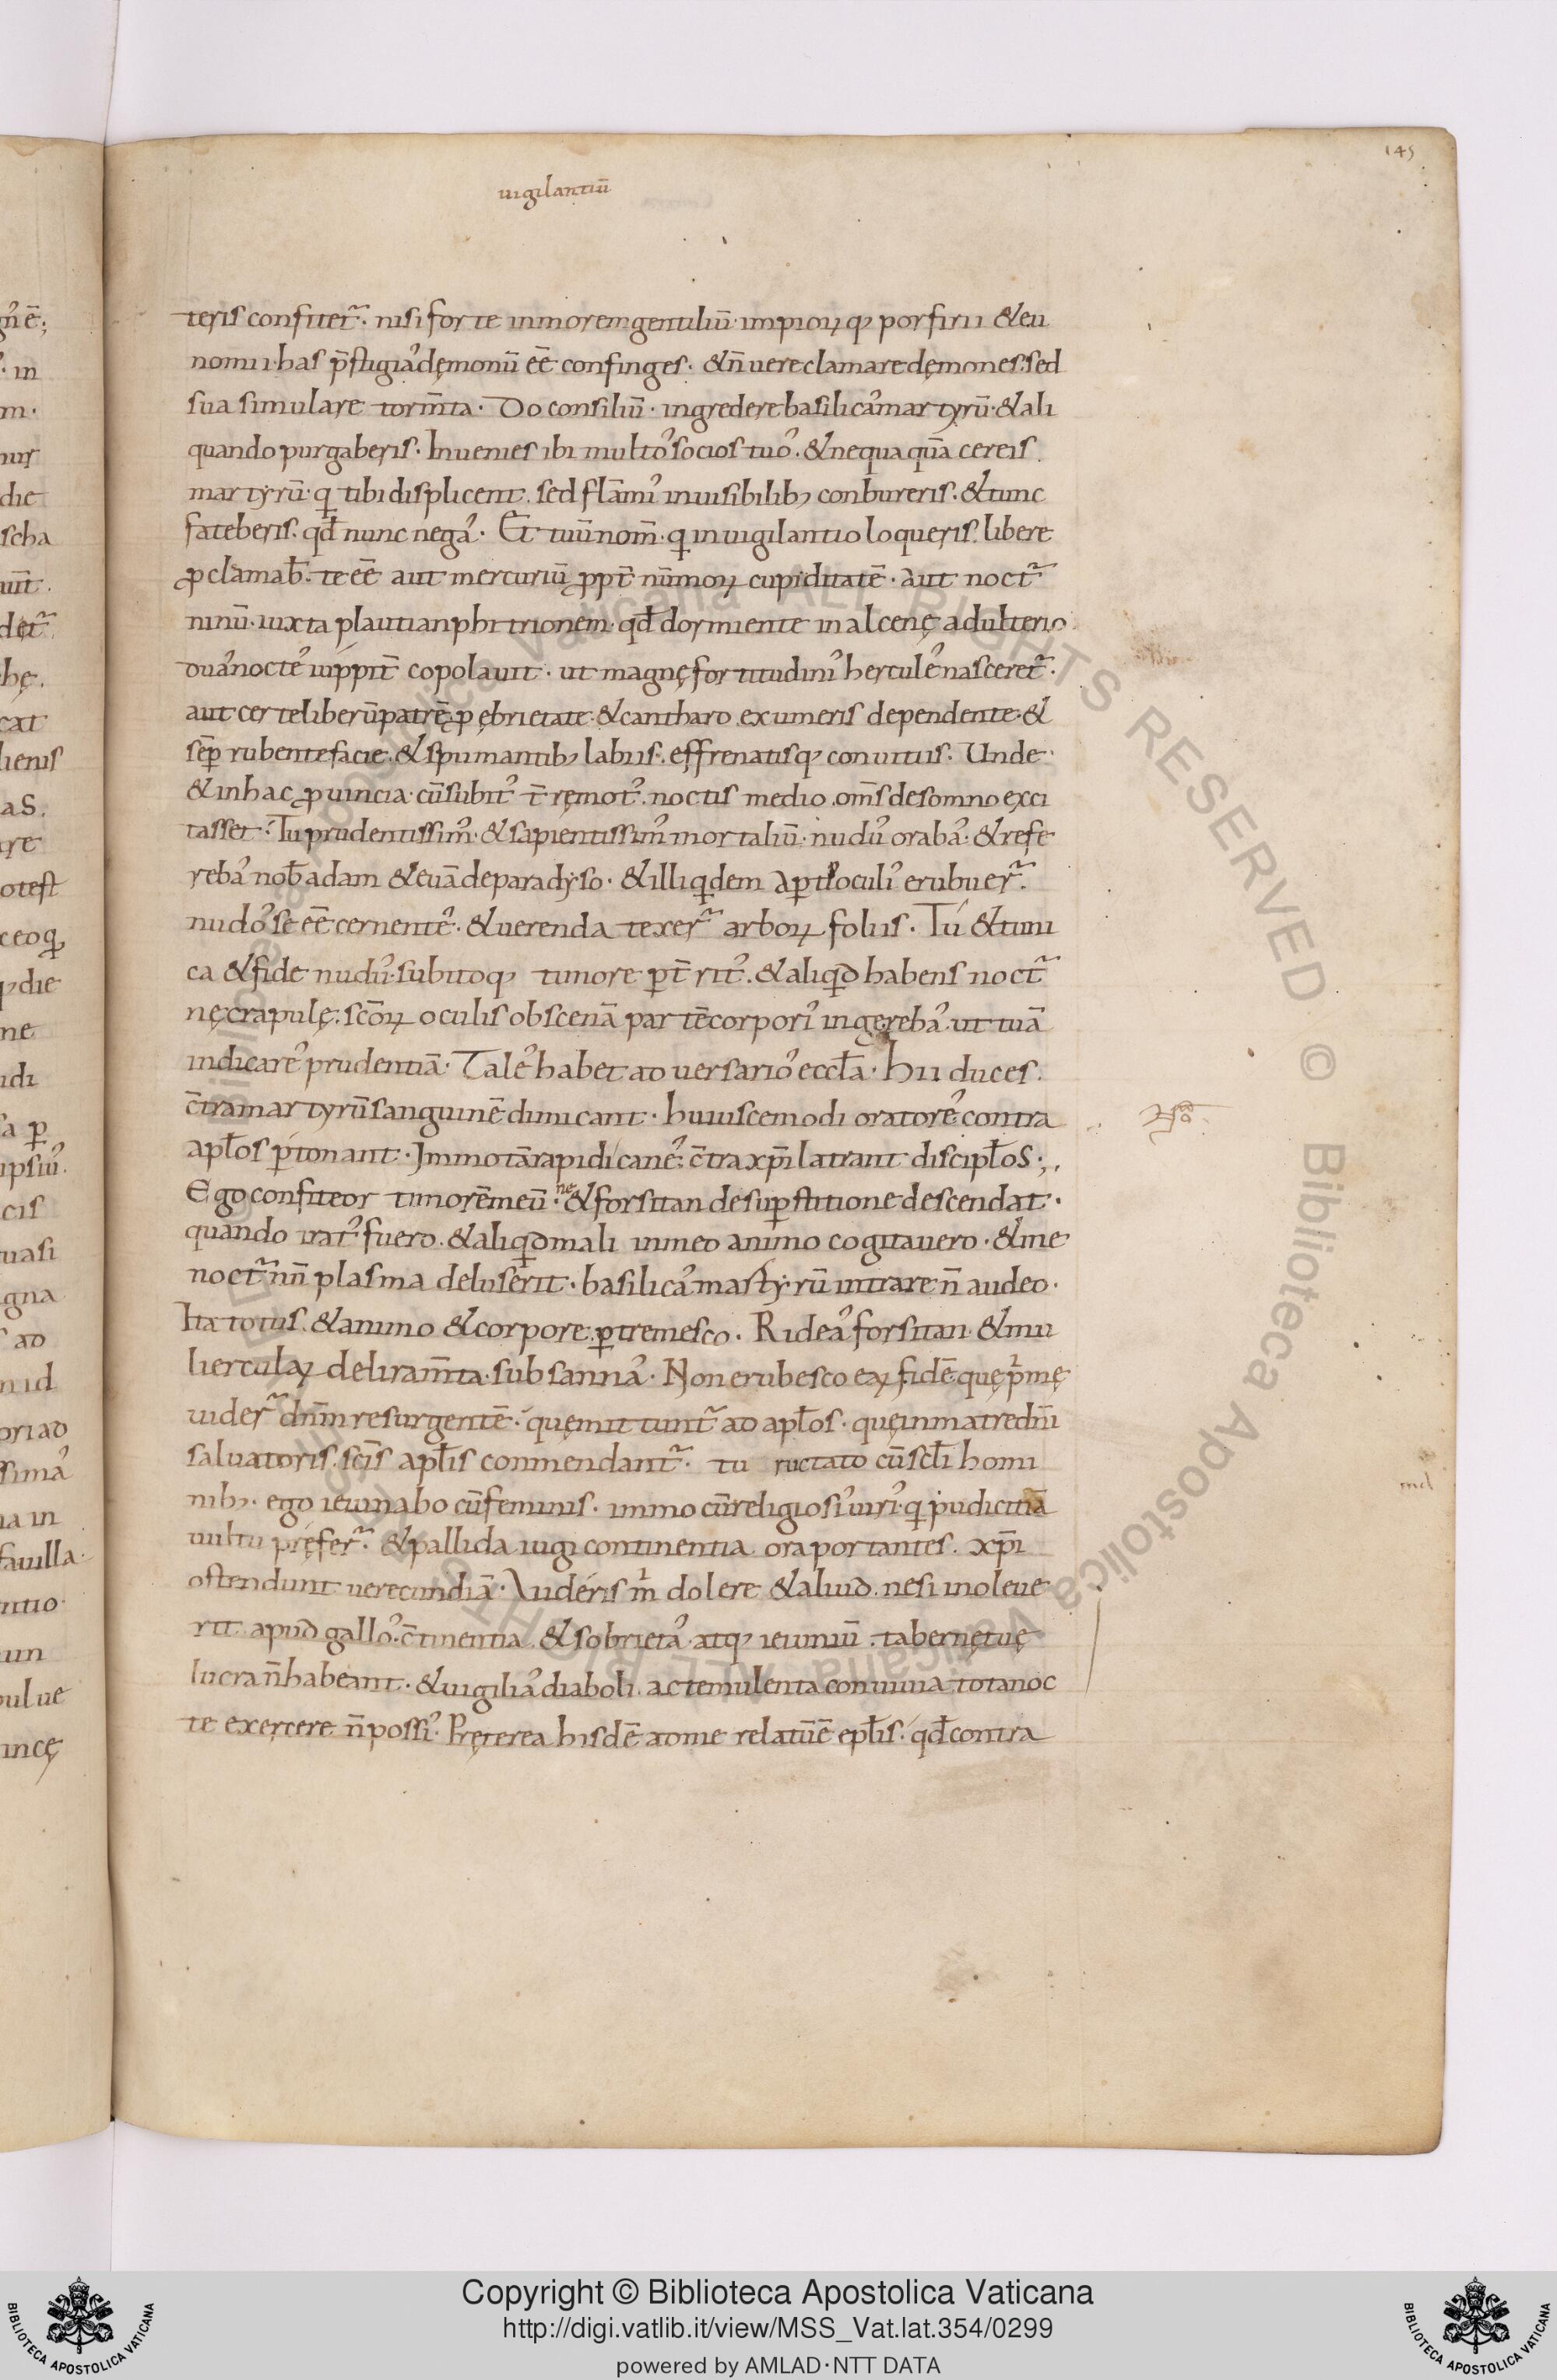 145
uigilantiū
teris confitet᷑. nisi forte in morem gentiliū impioꝝq; porfirii & eu
nomii. has p̄stigiaˀ dęmonū eē confinges. & n̄ uere clamare dęmones. sed
sua simulare torm̄ta. Do consiliū. ingredere basilicaˀ martyrū. & ali
quando purgaberis. Inuenies ibi multoˀ socios tuoˀ. & nequaquā cereis
martyrū. q tibi displicent. sed flāmiˀ inuisibilib; conbureris. & tunc
fateberis. qđ nunc negaˀ. Et tuū nom̄. q in uigilantio loqueris. libere
ꝓclamaƀ. te eē aut mercuriū ꝓpt̄ nūmoꝝ cupiditatē. aut noct᷑
ninū. iuxta plauti anphitrionem. qđ dormiente in alcenę adulterio
duaˀ nocteˀ iuppit̄ copolauit. ut magnę fortitudiniˀ herculeˀ nasceret᷑.
aut certe liberū patrē. ꝓ ębrietate. & cantharo ex umeris dependente. &
sēp rubente facie. & spumantib; labiis. effrenatisq; conuitiis. Unde
& in hac ꝓuincia. cū subitˀ t̄ręmotˀ. noctis medio. oms̄ de somno exci
tasset. Tu prudentissim̉. & sapientissim̉ mortaliū. nuduˀ orabaˀ. & refe
rebaˀ noƀ adam & euā de paradyso. & illi qdem aꝑtis oculiˀ erubuer᷑.
nudoˀ se eē cernenteˀ. & uerenda texer᷑ arboꝝ foliis. Tu & tuni
ca & fide nuduˀ. subitoq; timore ꝑt̄ritˀ. & aliqd habens noct᷑
nę crapulę. scōꝝ oculis obscenā partē corporiˀ ingerebaˀ. ut tuā
indicareˀ prudentiā. Taleˀ habet aduersarioˀ eccła. hii duces
c̄tra martyrū sanguinē dimicant. huiuscemodi oratoreˀ contra
apłos ꝑtonant. Immo tā rapidi caneˀ. c̄tra xp̄i latrant discipłos.
Ego confiteor timorē meū. ne & forsitan de suꝑstitione descendat.
quando iratˀ fuero. & aliqd mali in meo animo cogitauero. & me
noct᷑nn̄ plasma deluserit. basilicaˀ martyrū intrare n̄ audeo.
Ita totus. & animo & corpore ꝑtremesco. Rideaˀ forsitan & mu
liercułaꝝ deliram̄ta subsannaˀ. Non erubesco eaꝝ fidē. quę p̍mę
uider᷑ dn̄m resurgentē. quę mittunt᷑ ad apłos. quę in matre dn̄i
saluatoris. scīs apłis conmendant᷑. tu ructato cū scłi homi
nib;. ego ieiunabo cū feminis. immo cū religiosiˀ uiriˀ. q pudicitiā
uultu pręfer᷑. & pallida iugi continentia ora portantes. xp̄i
ostendunt uerecundiā. Uideris m̍ dolere & aliud. ne si inoleue
rit apud galloˀ c̄tinentia & sobrietaˀ atq; ieiuniū. tabernę tuę
lucra n̄ habeant. & uigiliaˀ diaboli. ac temulenta conuiuia tota noc
te exercere n̄ possiˀ. Pręterea hisdē ad me relatū ē epłis. qđ contra
Copyright © Biblioteca Apostolica Vaticana
http://digi.vatlib.it/view/MSS_Vat.lat.354/0299
powered by AMLAD·NTT DATA